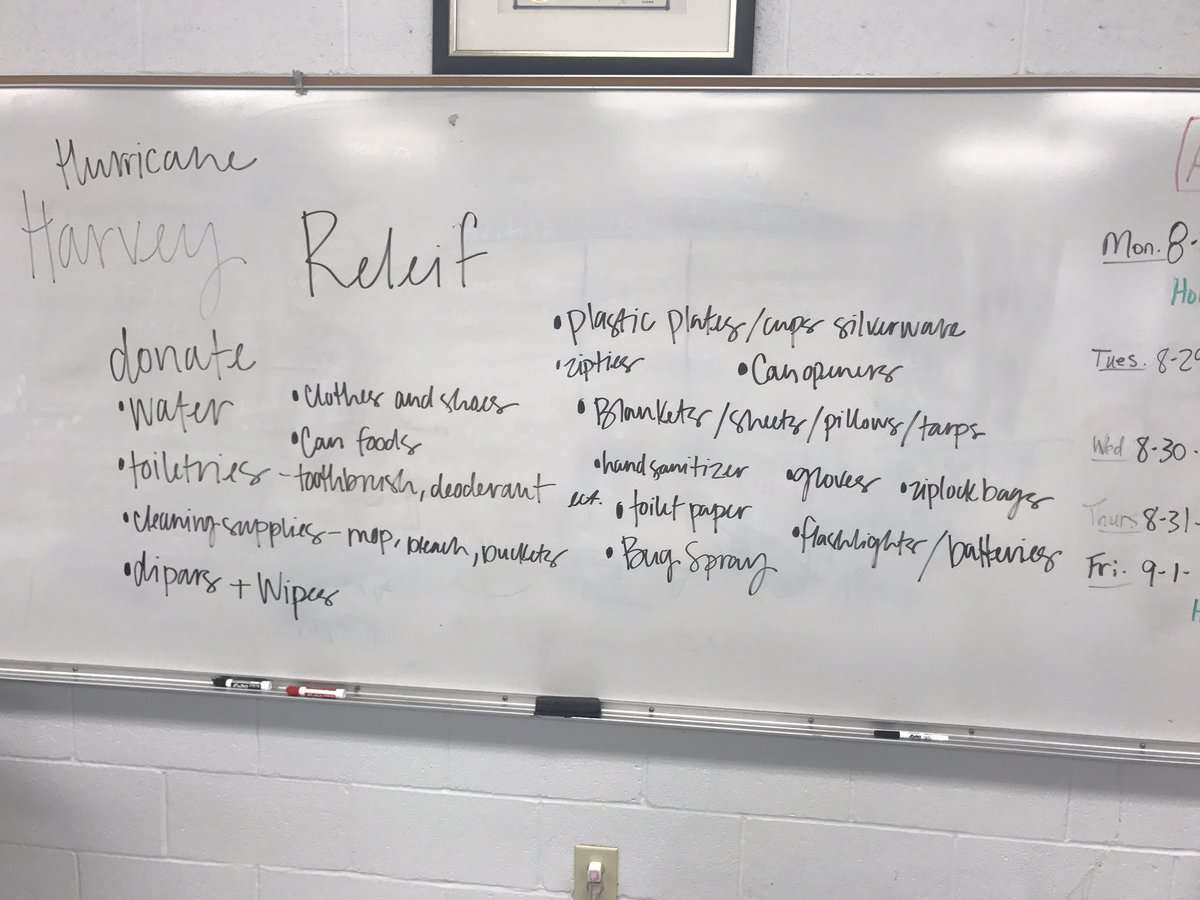 Hurricane
Harvey Releif
donate
• water
• clothes and shoes
• Can foods
• toiletries - toothbrush, deoderant ect.
• cleaning supplies - mop, bleach, buckets
• dipars + Wipes
• plastic plates/cups silverware
• zipties
• Can openers
• Blankets/sheets/pillows/tarps
• hand sanitizer
• gloves
• ziplock bags
• toilet paper
• flashlights/batteries
• Bug Spray
Mon. 8-
Ho
Tues. 8-29
Wed 8-30
Thurs 8-31
Fri. 9-1-
H